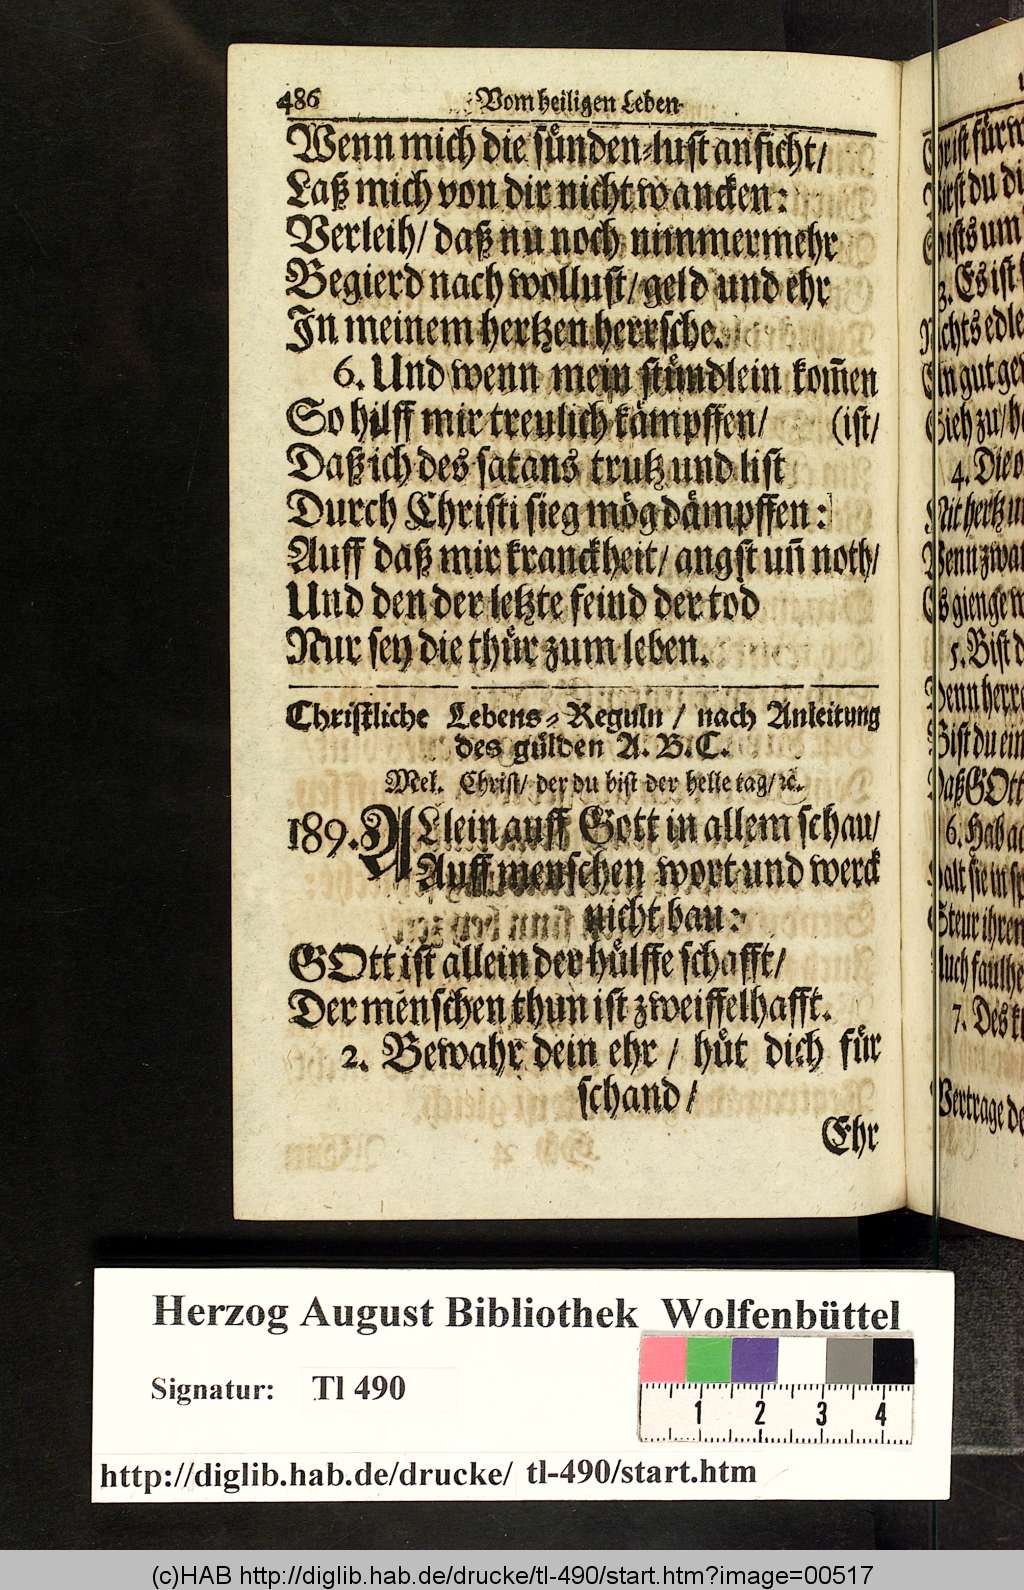 486 Vom heiligen Leben
Wenn mich die sünden-lust anficht/
Laß mich von dir nicht wancken:
Verleih/ daß nu noch nimmermehr
Begierd nach wollust/ geld und ehr
In meinem hertzen herrsche.
6. Und wenn mein stündlein kom̃en
So hilff mir treulich kämpffen/ (ist/
Daß ich des satans trutz und list
Durch Christi sieg mög dämpffen:
Auff daß mir kranckheit/ angst uñ noth/
Und den der letzte feind der tod
Nur sey die thür zum leben.
Christliche Lebens-Reguln / nach Anleitung
des gülden A. B. C.
Mel. Christ/ der du bist der helle tag/ ꝛc.
189. ALlein auff Gott in allem schau/
Auff menschen wort und werck
nicht bau:
GOtt ist allein der hülffe schafft/
Der menschen thun ist zweiffelhafft.
2. Bewahr dein ehr / hüt dich für
schand /
Ehr
ist
du
um
z. Es ist
gut
Sieh zu/
4. Die
hertz
Wenn
gienge
5. Bist
Denn
Bist du
GOtt
6. Hab
halt sie in
Steur ihren
7. Des
Vertrage
Herzog August Bibliothek Wolfenbüttel
Signatur: Tl 490
1 2 3 4
http://diglib.hab.de/drucke/ tl-490/start.htm
(c)HAB http://diglib.hab.de/drucke/tl-490/start.htm?image=00517